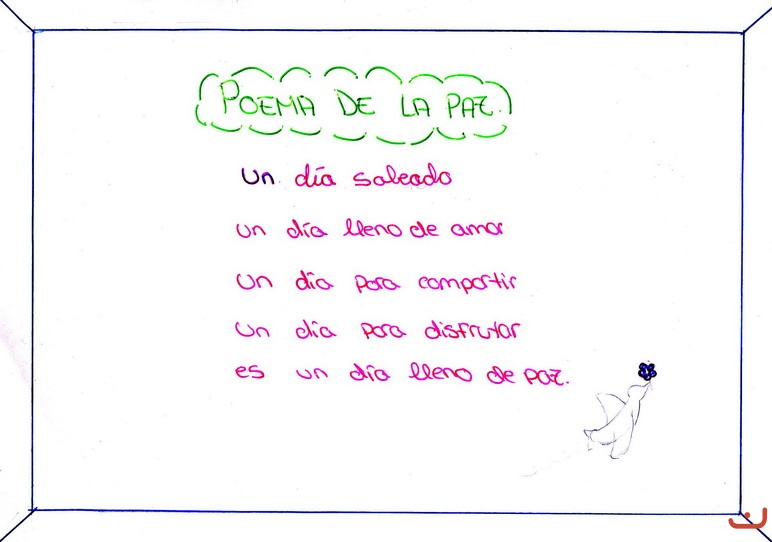 POEMA DE LA PAZ.
Un día soleado
un día lleno de amor
un día para compartir
un día para disfrutar
es un día lleno de paz.